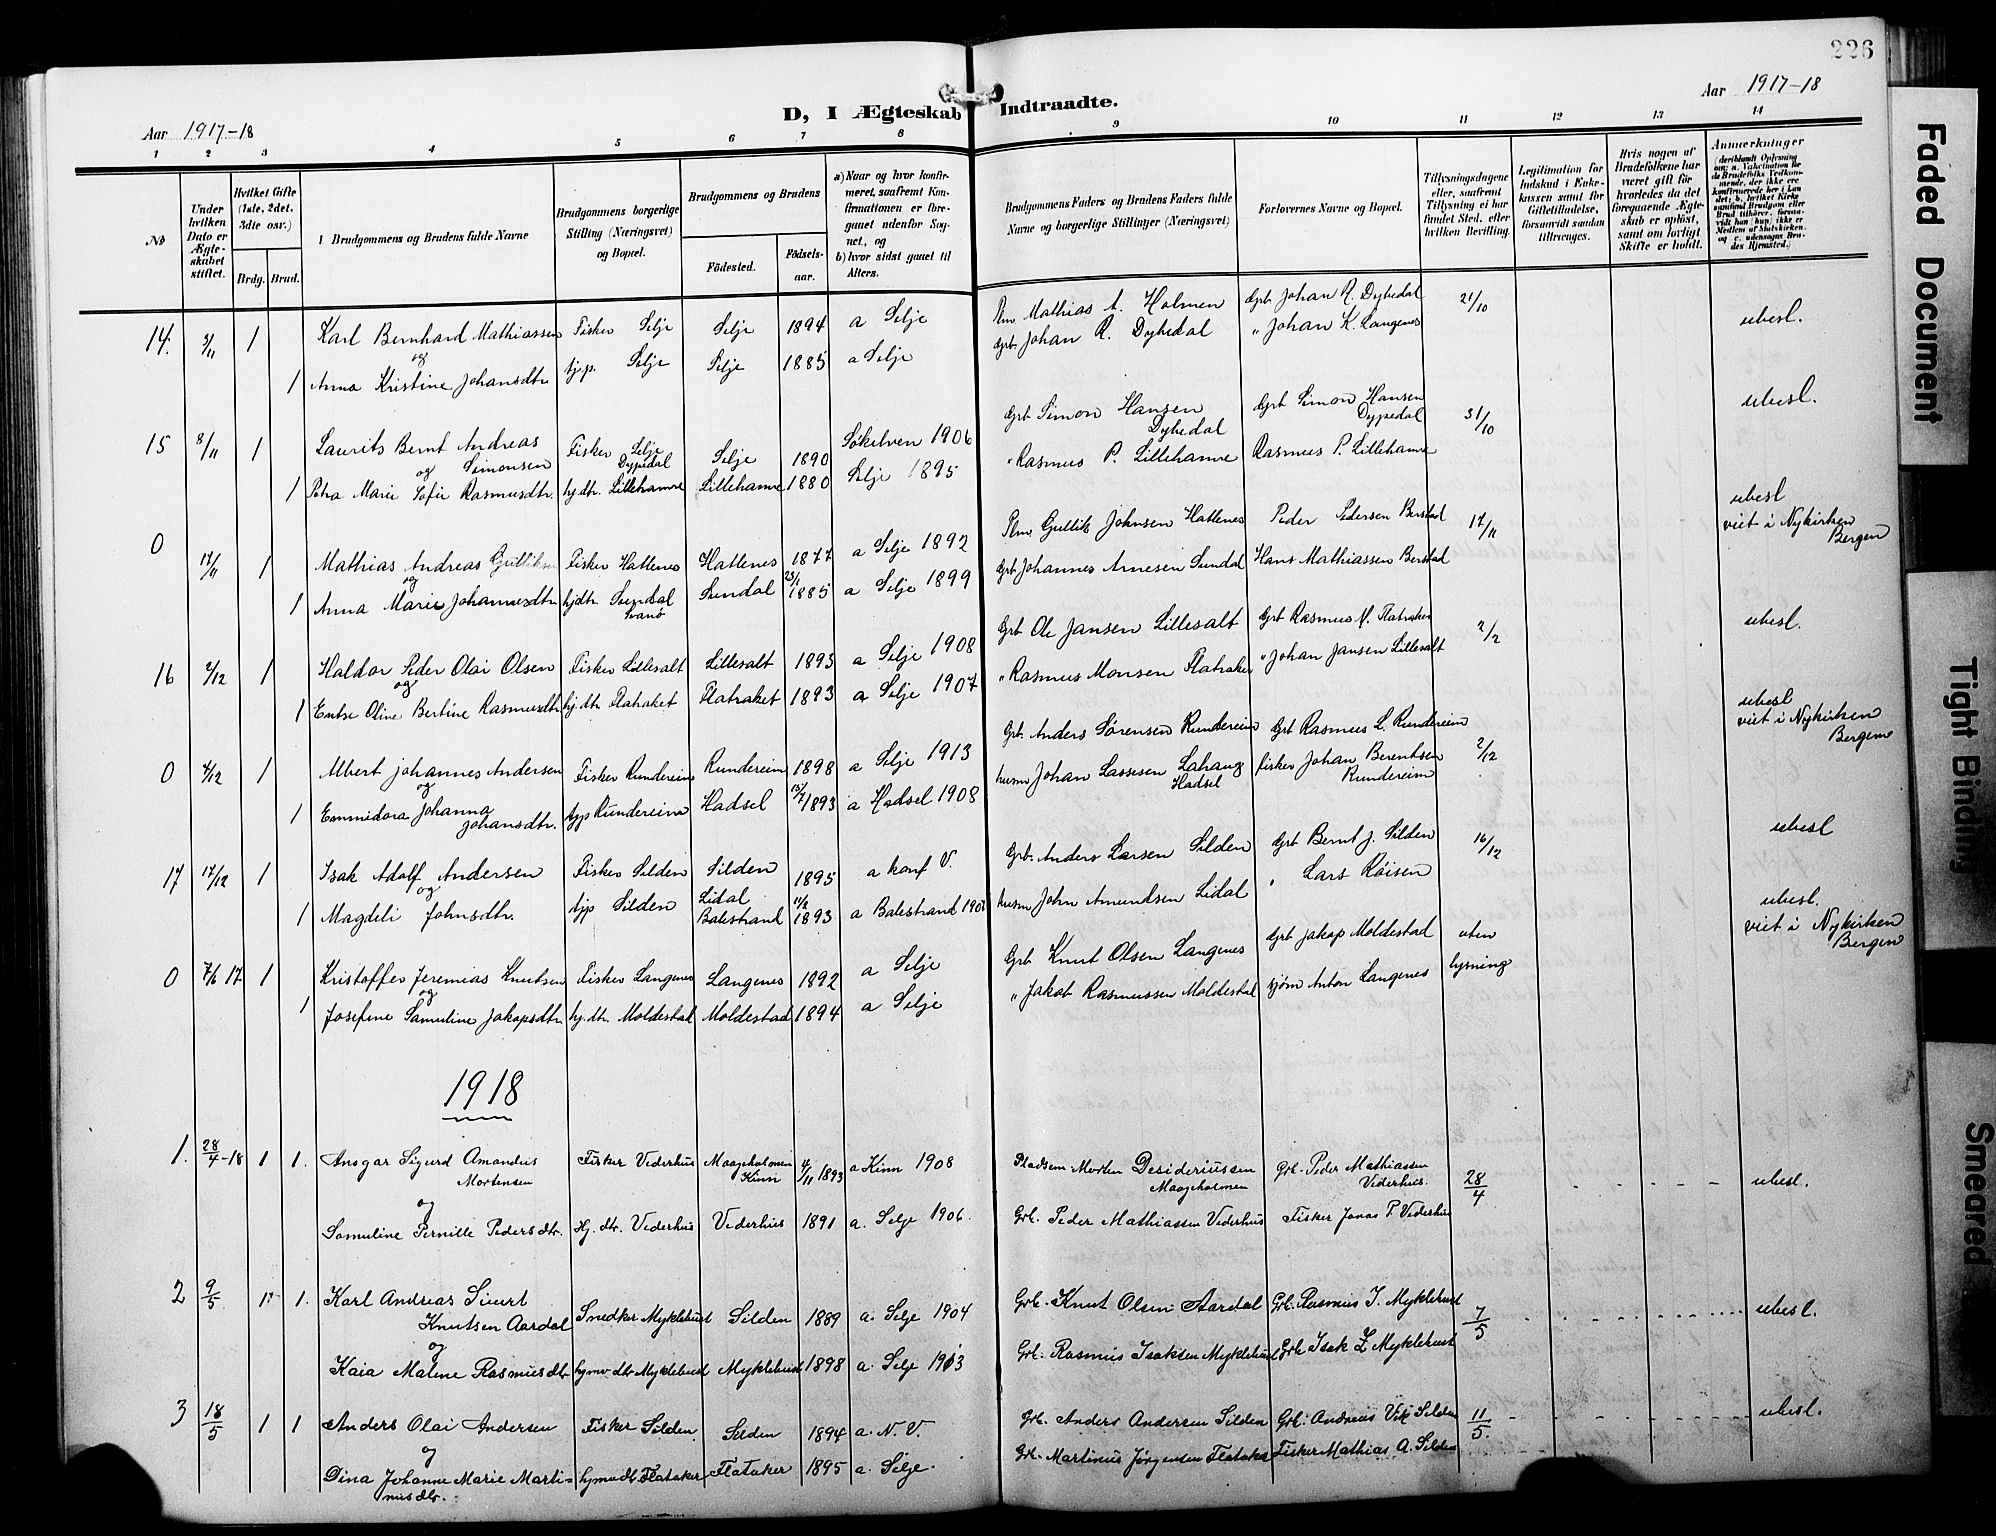 226
D, I Ægteskab Indtraadte.
Aar 1917-18
Aar 1917-18
1 2 3 4 5 6 7 8 9 10 11 12 13 14
No
Under hvilken Dato er Ægteskabet stiftet.
Hvilket Gifte (1ste, 2det, 3dte osv.)
Brdg. Brud.
Brudgommens og Brudens fulde Navne
Brudgommens borgerlige Stilling (Næringsvei) og Bopæl.
Brudgommens og Brudens
Födested.
Födselsaar.
a) Naar og hvor konfirmeret, saafremt Konfirmationen er foregaaet udenfor Sognet, og
b) hvor sidst gaaet til Alters.
Brudgommens Faders og Brudens Faders fulde Navne og borgerlige Stillinger (Næringsvei)
Forlovernes Navne og Bopæl.
Tillysningsdagene eller, saafremt Tillysning ei har fundet Sted, efter hvilken Bevilling.
Legitimation for Indskud i Enkekassen samt for Giftetilladelse, forsaavidt saadan tiltrænges.
Hvis nogen af Brudefolkene har været gift før hvorledes da det foregaaende Ægteskab er oplöst, samt om lovligt Skifte er holdt.
Anmærkninger
14. 3/11 1 Karl Bernhard Mathiassen Fisker Selje Selje 1894 a Selje Plm Mathias A. Holmen Grb. Johan R. Dybedal 21/10 ubesl.
og
1 Anna Kristine Johansdtr tjp. Selje Selje 1885 a Selje Grb. Johan R. Dybedal " Johan K. Langenes
15 8/11 1 Laurits Bernt Andreas Simonsen Fisker Selje Dypedal Selje 1890 Søkelven 1906 Grb Simon Hansen Dybedal Grb Simon Hansen Dypedal 31/10 ubesl.
og
1 Petra Marie Sofie Rasmusdtr. hj.dtr. Lillehamre Lillehamre 1880 Selje 1895 " Rasmus P. Lillehamre Rasmus P. Lillehamre
0 17/11 1 Mathias Andreas Gulliksen Fisker Hatlenes Hatlenes 1877 a Selje 1892 Plm. Gullik Johnsen Hatlenes Peder Pedersen Berstad 17/11 ubesl viet i Nykirken Bergen
og
1 Anna Marie Johannesdtr. hjdtr. Sundal Sundal 23/1 1885 a Selje 1899 Grb Johannes Arnesen Sundal Hans Mathiassen Berstad
16 2/12 1 Haldor Peder Olai Olsen Fisker Lillesalt Lillesalt 1893 a Selje 1908 Grb Ole Jansen Lillesalt Grb Rasmus M. Flatraket 2/2 ubesl.
og
1 Oline Bertine Rasmusdtr hj.dtr Flatraket Flatraket 1893 a Selje 1907 " Rasmus Monsen Flatraket " Johan Jansen Lillesalt
0 4/12 1 Albert Johannes Andersen Fisker Rundereim Rundereim 1898 a Selje 1913 Grb. Anders Sørensen Rundereim Grb Rasmus L. Rundereim 2/12 ubesl viet i Nykirken Bergen
og
1 Emmidora Johanna Johansdtr. tjp Rundereim Hadsel 1893 a Hadsel 1908 husm Johan Lassesen Lahaug Hadsel fisker Johan Berentsen Rundereim
17 17/12 1 Isak Adolf Andersen Fisker Silden Silden 1895 a konf V. Grb. Anders Larsen Silden Grb Bernt J. Silden 16/12 ubesl
og
1 Magdeli Johnsdtr. tjp Silden Lidal Balestrand 11/2 1893 a Balestrand husm John Amundsen Lidal " Lars Røisen
0 7/6 17 1 Kristoffer Jeremias Knutsen Fisker Langenes Langenes 1892 a Selje Grb Knut Olsen Langenes Grb Jakop Moldestad uten lysning ubesl. viet i Nykirken Bergen
og
1 Josefine Samuline Jakopsdtr. hj.dtr. Moldestad Moldestad 1894 a Selje " Jakob Rasmussen Moldestad sjøm Anton Langenes
1918
1. 28/4-18 1 1. Ansgar Sigurd Amandus Mortensen Fisker Vederhus Maageholmen Kinn 4/11 1893 a Kinn 1908 Pladsm Morten Desideriussen Maageholmen Grb. Peder Mathiassen Vederhus. 28/4 ubesl.
og
Samuline Pernille Pedersdtr. Hj. dtr. Vederhus Vederhus 1891 a. Selje 1906. Grb. Peder Mathiassen Vederhus Fisker Jonas P. Vederhus
2 9/5 1 1. Karl Andreas Sivert Knutsen Aardal Snedker Myklebust Silden 1889 a. Selje 1904 Grb. Knut Olsen Aardal Grb. Rasmus I. Myklebust 7/5 ubesl.
og
Kaia Malene Rasmusdtr hjemv dtr Myklebust Myklebust 1898 a. Selje 1913 Grb. Rasmus Isaksen Myklebust Grb Isak Z Myklebust
3 18/5 1 1 Anders Olai Andersen Fisker Silden. Silden 1894 a. N. V. Grb. Anders Andersen Silden Grb. Andreas Vik Silden 11/5. ubesl.
og
Dina Johanne Marie Martinusdtr. hjemv dtr Flataker Flataker 1895 a. Selje. Grb. Martinus Jørgensen Flataker Fisker Mathias A. Silden
Faded Document
Tight Binding
Smeared